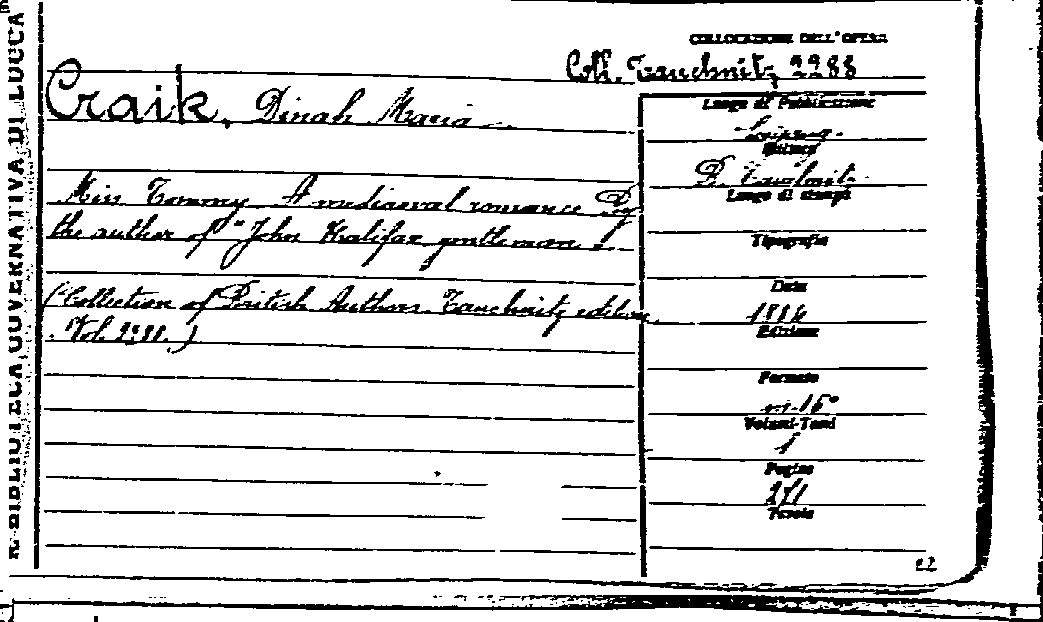 R. BIBLIOTECA GOVERNATIVA DI LUCCA
COLLOCAZIONE DELL'OPERA
Coll. Tauchnitz 2288
Craik, Dinah Maria
Miss Tommy. A mediaeval romance By
the author of "John Halifax gentleman"
(Collection of British Authors. Tauchnitz edition
Vol.
Luogo di Pubblicazione
Leipzig
Editore
B. Tauchnitz
Luogo di stampa
Tipografia
Data
Edizione
Formato
in-16°
Volumi-Tomi
1
Pagine
271
Tavole